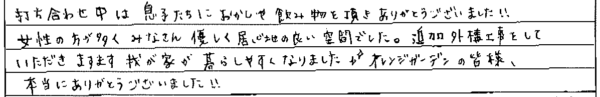 打ち合わせ中は息子たちにおかしや飲み物を頂きありがとうございました!!
女性の方が多く みなさん優しく居心地の良い空間でした。追加外構工事をして
いただき ますます我が家が暮らしやすくなりました♪♪ オレンジガーデンの皆様、
本当にありがとうございました!!